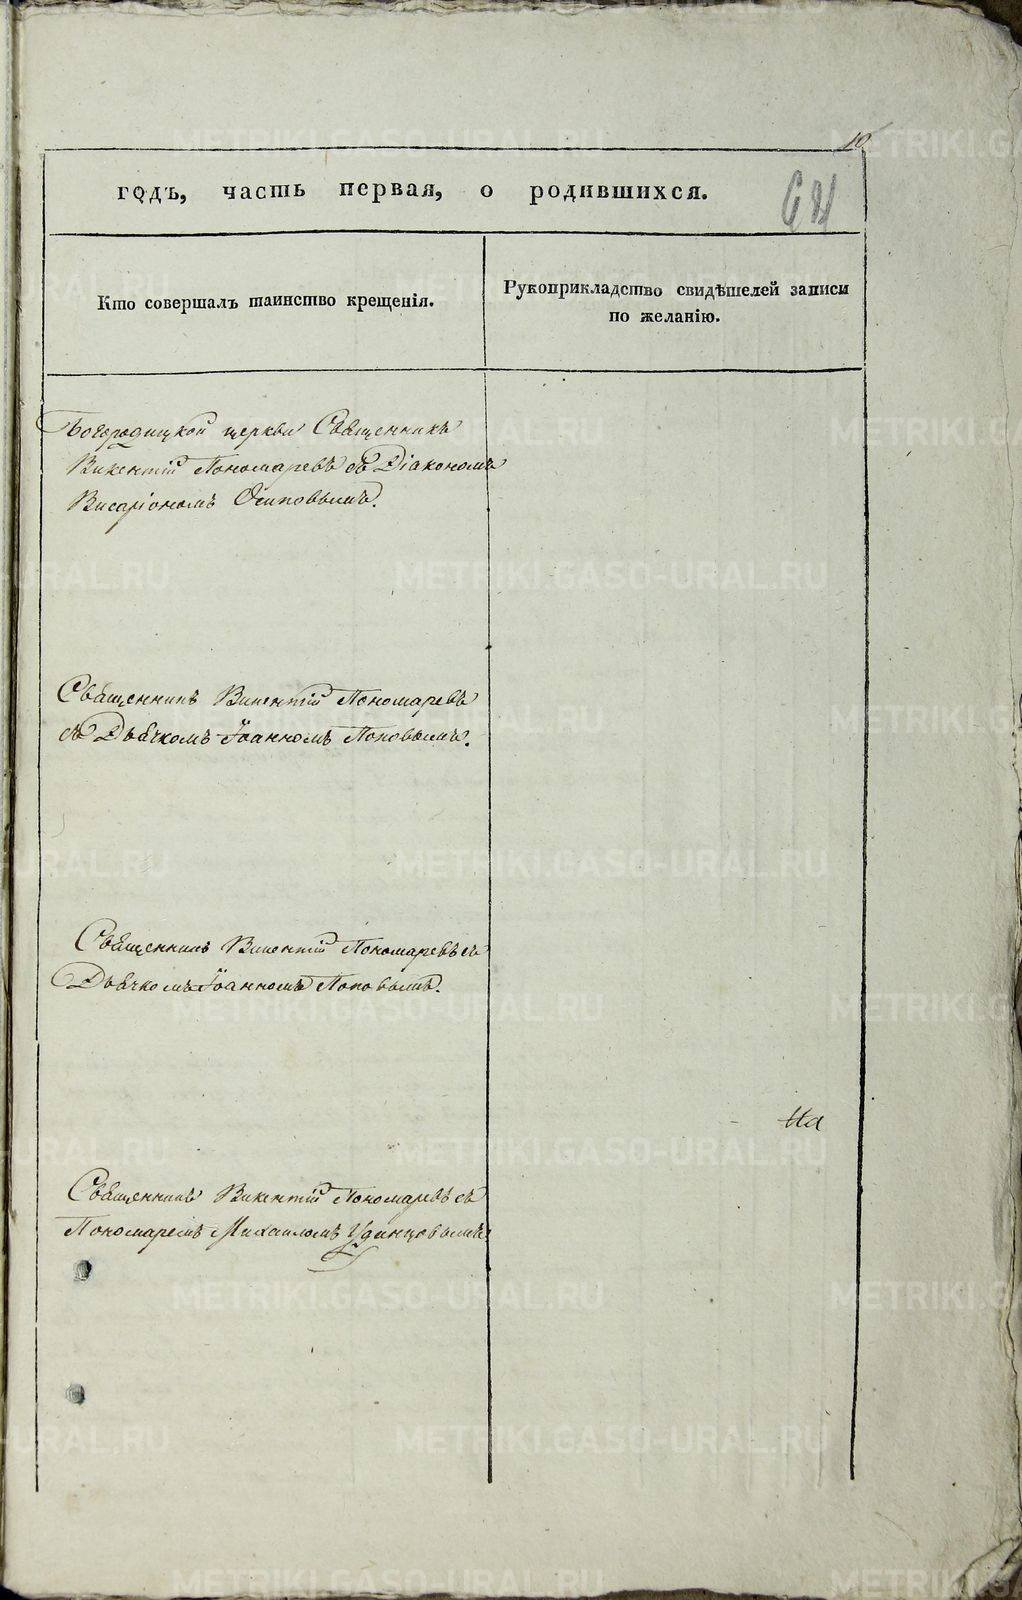 10
годъ, часть первая, о родившихся.
64
Кто совершалъ таинство крещенія.
Рукоприкладство свидѣтелей записи
по желанію.
Богородицкой церкви Священникъ
Викентій Пономаревъ съ Діакономъ
Висаріономъ Осиповымъ.
Священникъ Викентій Пономаревъ
съ Дьячкомъ Іоанномъ Поповымъ.
Священникъ Викентій Пономаревъ съ
Дьячкомъ Іоанномъ Поповымъ.
На
Священникъ Викентій Пономаревъ съ
Пономаремъ Михаиломъ Удинцовымъ
METRIKI.GASO-URAL.RU